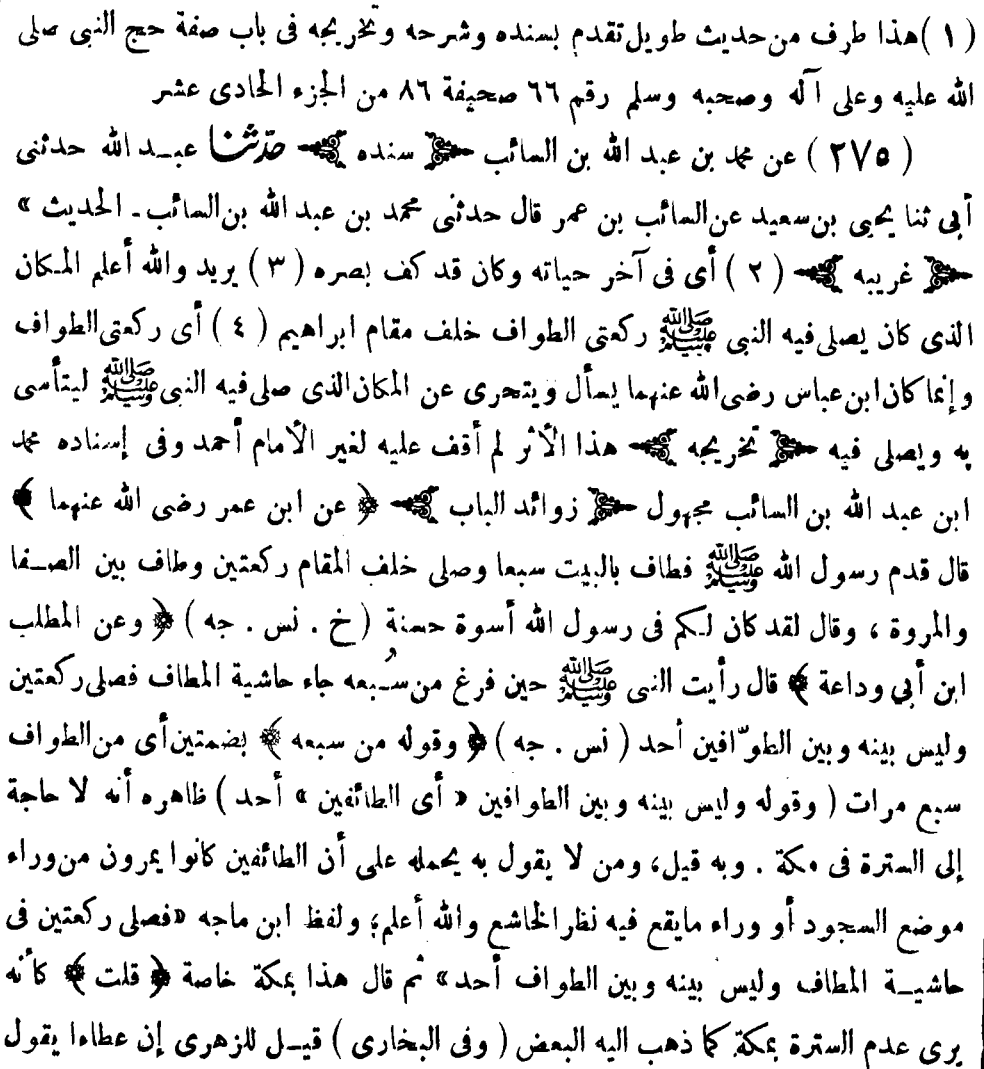 (١) هذا طرف من حديث طويل تقدم بسنده وشرحه وتخريجه فى باب صفة حج النبى صلى
الله عليه وعلى آله وصحبه وسلم رقم ٦٦ صحيفة ٨٦ من الجزء الحادى عشر
(٢٧٥) عن محمد بن عبد الله بن السائب ﴿ سنده ﴾ حدّثنا عبد الله حدثنى
أبى ثنا يحيى بن سعيد عن السائب بن عمر قال حدثنى محمد بن عبد الله بن السائب ـ الحديث »
﴿ غريبه ﴾ (٢) أى فى آخر حياته وكان قد كف بصره (٣) يريد والله أعلم المكان
الذى كان يصلى فيه النبى ﷺ ركعتى الطواف خلف مقام ابراهيم (٤) أى ركعتى الطواف
وإنما كان ابن عباس رضى الله عنهما يسأل ويتحرى عن المكان الذى صلى فيه النبى ﷺ ليتأسى
به ويصلى فيه ﴿ تخريجه ﴾ هذا الأثر لم أقف عليه لغير الأمام أحمد وفى إسناده محمد
ابن عبد الله بن السائب مجهول ﴿ زوائد الباب ﴾ ﴿ عن ابن عمر رضى الله عنهما ﴾
قال قدم رسول الله ﷺ فطاف بالبيت سبعا وصلى خلف المقام ركعتين وطاف بين الصفا
والمروة ، وقال لقد كان لكم فى رسول الله أسوة حسنة (خ . نس . جه) ﴿ وعن المطلب
ابن أبي وداعة ﴾ قال رأيت النبى ﷺ حين فرغ من سُبعه جاء حاشية المطاف فصلى ركعتين
وليس بينه وبين الطوّافين أحد (نس . جه) ﴿ وقوله من سبعه ﴾ بضمتين أى من الطواف
سبع مرات (وقوله وليس بينه وبين الطوافين « أى الطائفين » أحد) ظاهره أنه لا حاجة
إلى السترة فى مكة . وبه قيل، ومن لا يقول به يحمله على أن الطائفين كانوا يمرون من وراء
موضع السجود أو وراء مايقع فيه نظر الخاشع والله أعلم؛ ولفظ ابن ماجه «فصلى ركعتين فى
حاشية المطاف وليس بينه وبين الطواف أحد» ثم قال هذا بمكة خاصة ﴿ قلت ﴾ كأنه
يرى عدم السترة بمكة كما ذهب اليه البعض (وفى البخارى) قيل للزهرى إن عطاءا يقول